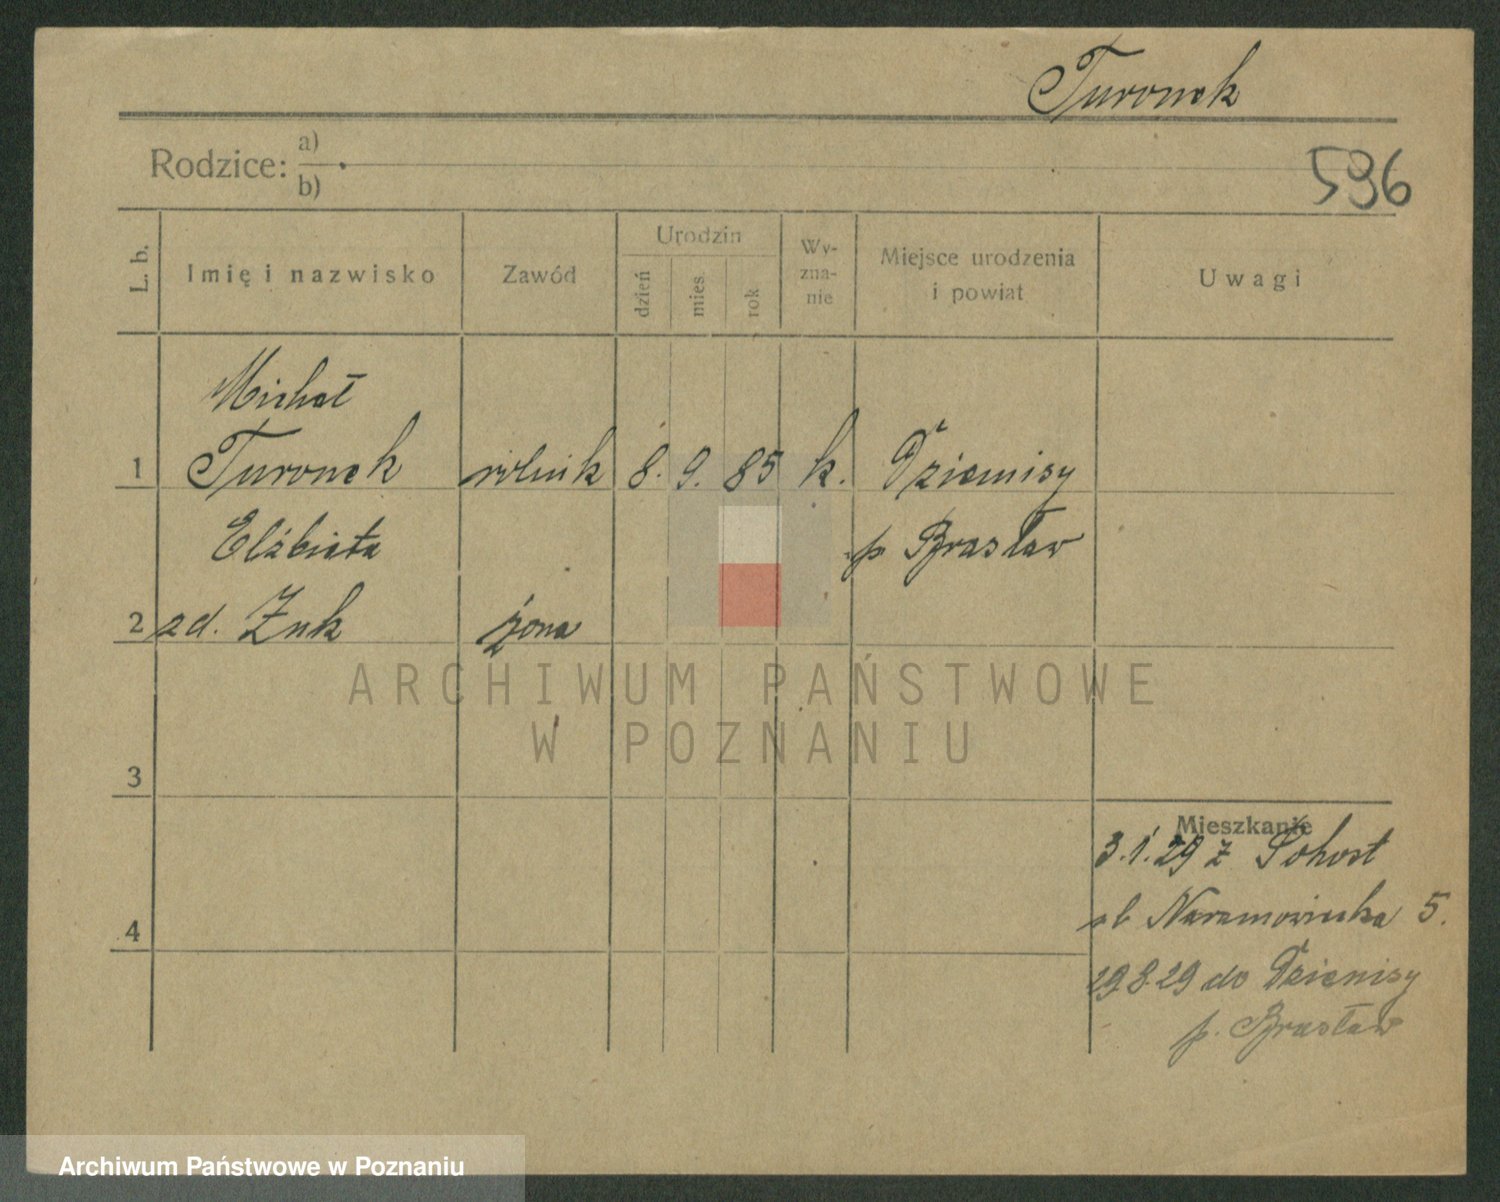 Turonek
Rodzice: a)
b)
596
L. b.
Imię i nazwisko
Zawód
Urodzin
dzień
mies.
rok
Wy-
zna-
nie
Miejsce urodzenia
i powiat
Uwagi
Michał
1 Turonek rolnik 8. 9. 85 k. Dziemisy
Elżbieta p Brasław
2 zd. Żuk żona
ARCHIWUM PAŃSTWOWE
W POZNANIU
3
Mieszkanie
3.1.29 z
Naramowicka 5.
4
29.8.29 do Dzienisy
p. Brasław
Archiwum Państwowe w Poznaniu